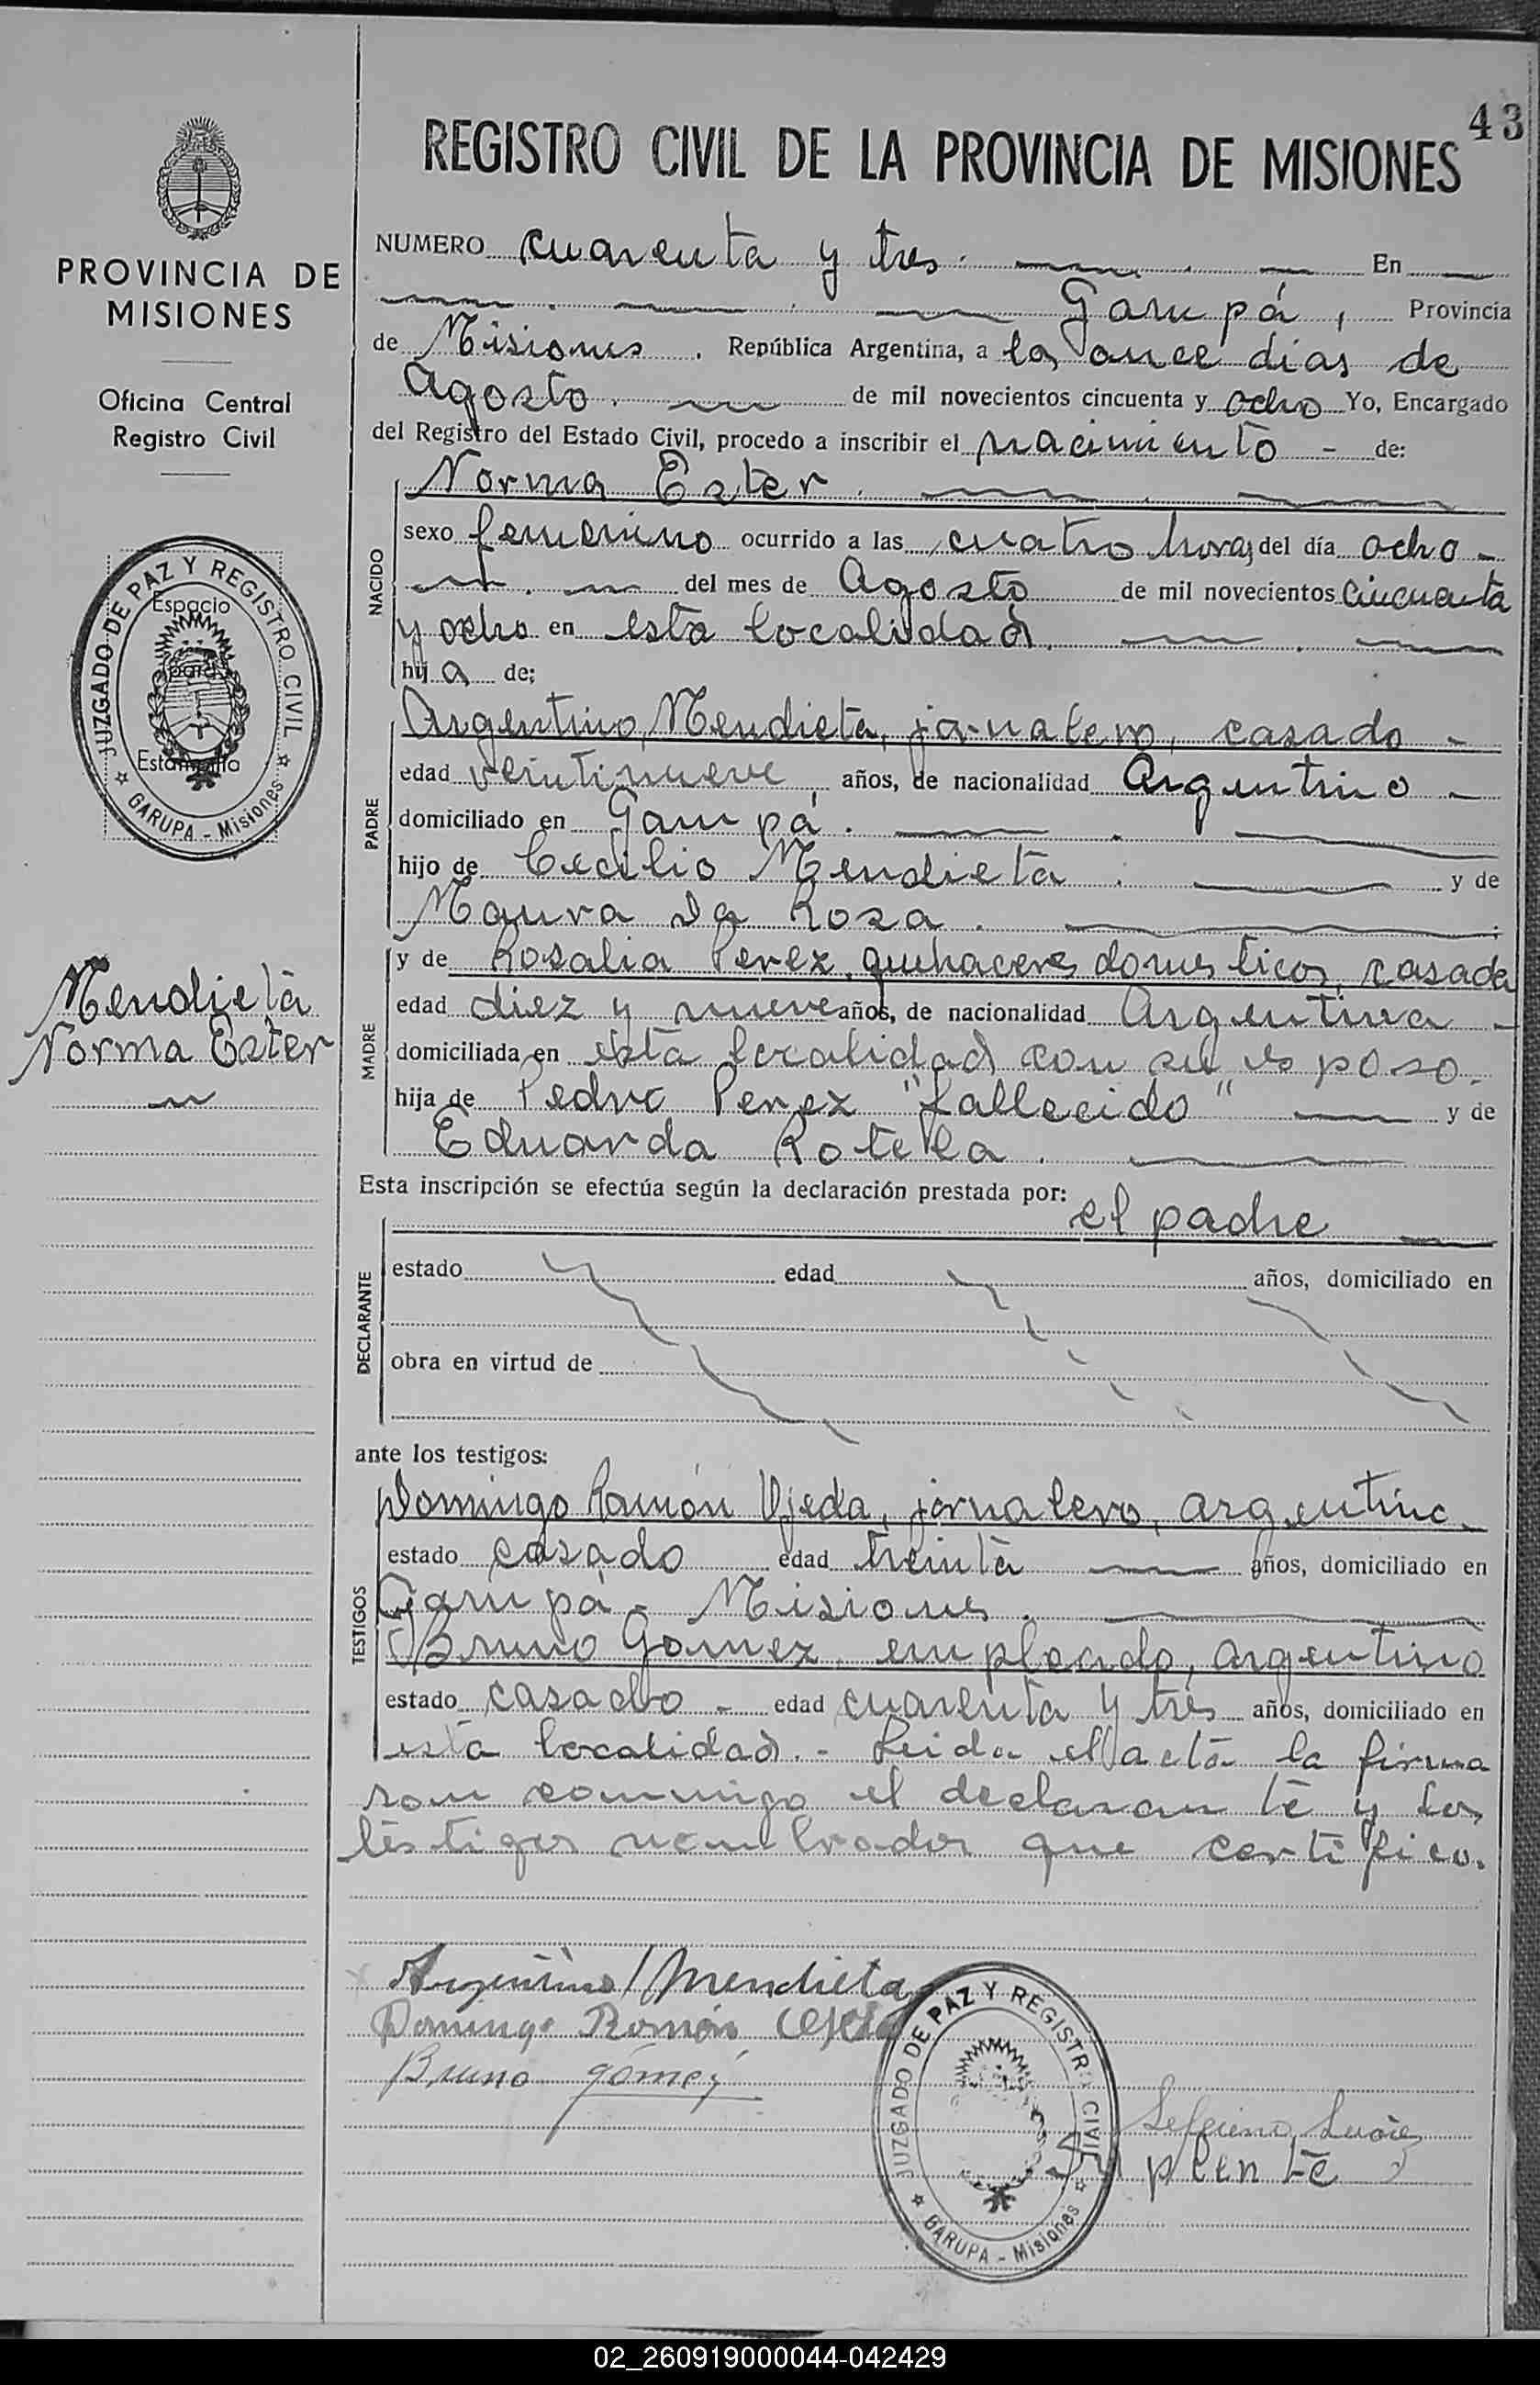 43
REGISTRO CIVIL DE LA PROVINCIA DE MISIONES
PROVINCIA DE
MISIONES
Oficina Central
Registro Civil
JUZGADO DE PAZ Y REGISTRO CIVIL
Espacio
para
Estampilla
GARUPA - Misiones
Mendieta
Norma Ester
NUMERO cuarenta y tres. En
Garupá, Provincia
de Misiones. República Argentina, a los once días de
Agosto. de mil novecientos cincuenta y ocho Yo, Encargado
del Registro del Estado Civil, procedo a inscribir el nacimiento - de:
Norma Ester.
NACIDO
sexo femenino ocurrido a las cuatro horas del día ocho -
del mes de Agosto de mil novecientos cincuenta
y ocho en esta localidad.
hij a de;
PADRE
Argentino Mendieta, jornalero, casado -
edad veintinueve, años, de nacionalidad Argentino -
domiciliado en Garupá.
hijo de Cecilio Mendieta. y de
Maura da Rosa.
MADRE
y de Rosalia Perez, quehaceres domesticos, casada
edad diez y nueve años, de nacionalidad Argentina -
domiciliada en esta localidad con su esposo.
hija de Pedro Perez "fallecido" y de
Eduarda Rotela.
Esta inscripción se efectúa según la declaración prestada por:
el padre
DECLARANTE
estado edad años, domiciliado en
obra en virtud de
ante los testigos:
TESTIGOS
Domingo Ramón Ojeda, jornalero, argentino -
estado casado edad treinta años, domiciliado en
Garupá - Misiones.
Bruno Gomez, empleado, argentino
estado casado - edad cuarenta y tres años, domiciliado en
esta localidad. - Leida el acta la firma
ron conmigo el declarante y los
testigos nombrados que certifico.
Argentino Mendieta
Domingo Ramón Ojeda
Bruno Gómez
JUZGADO DE PAZ Y REGISTRO CIVIL
GARUPA - Misiones
Suplente
02_260919000044-042429